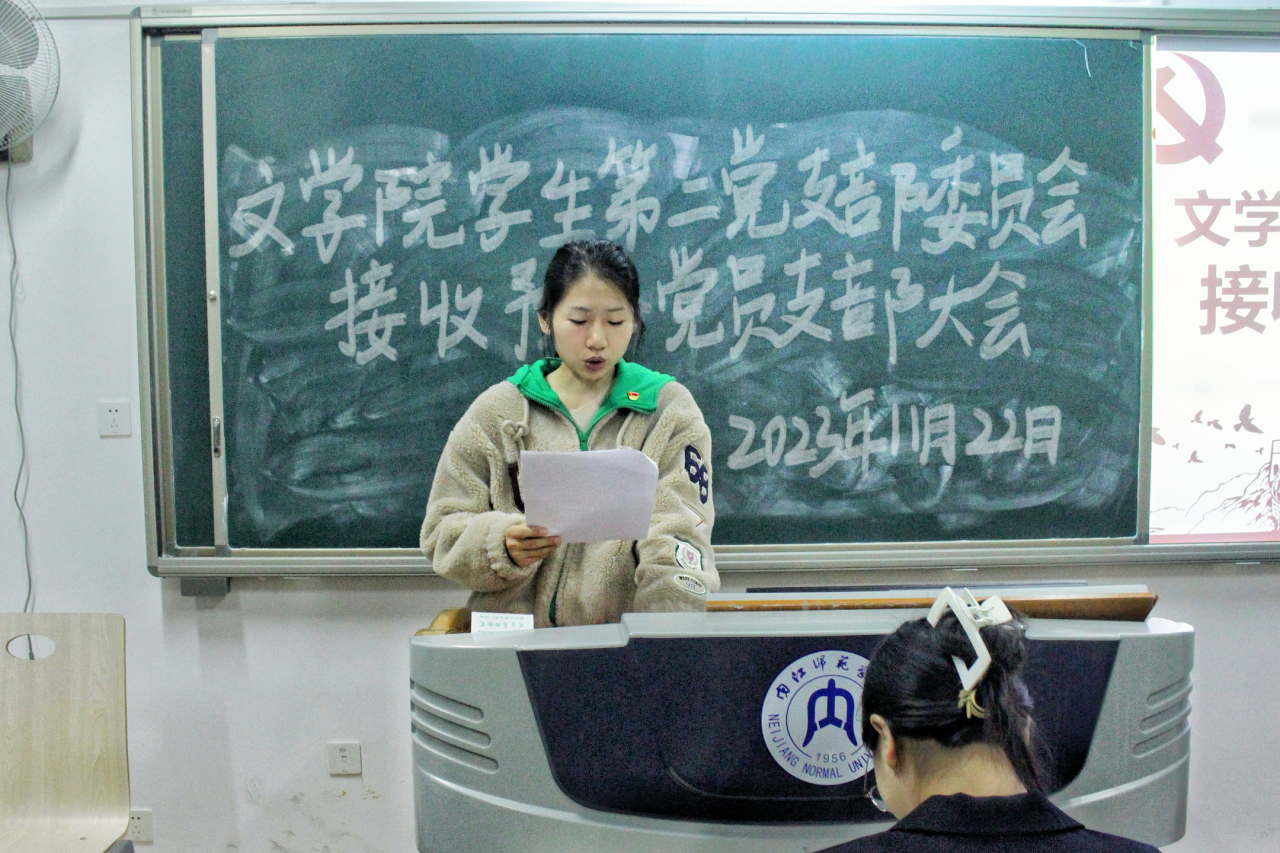 文学院学生第二党支部委员会
接收予 党员支部大会
2023年11月22日
文学
接
66
内江师范
内
1956
NEIJIANG NORMAL UNI